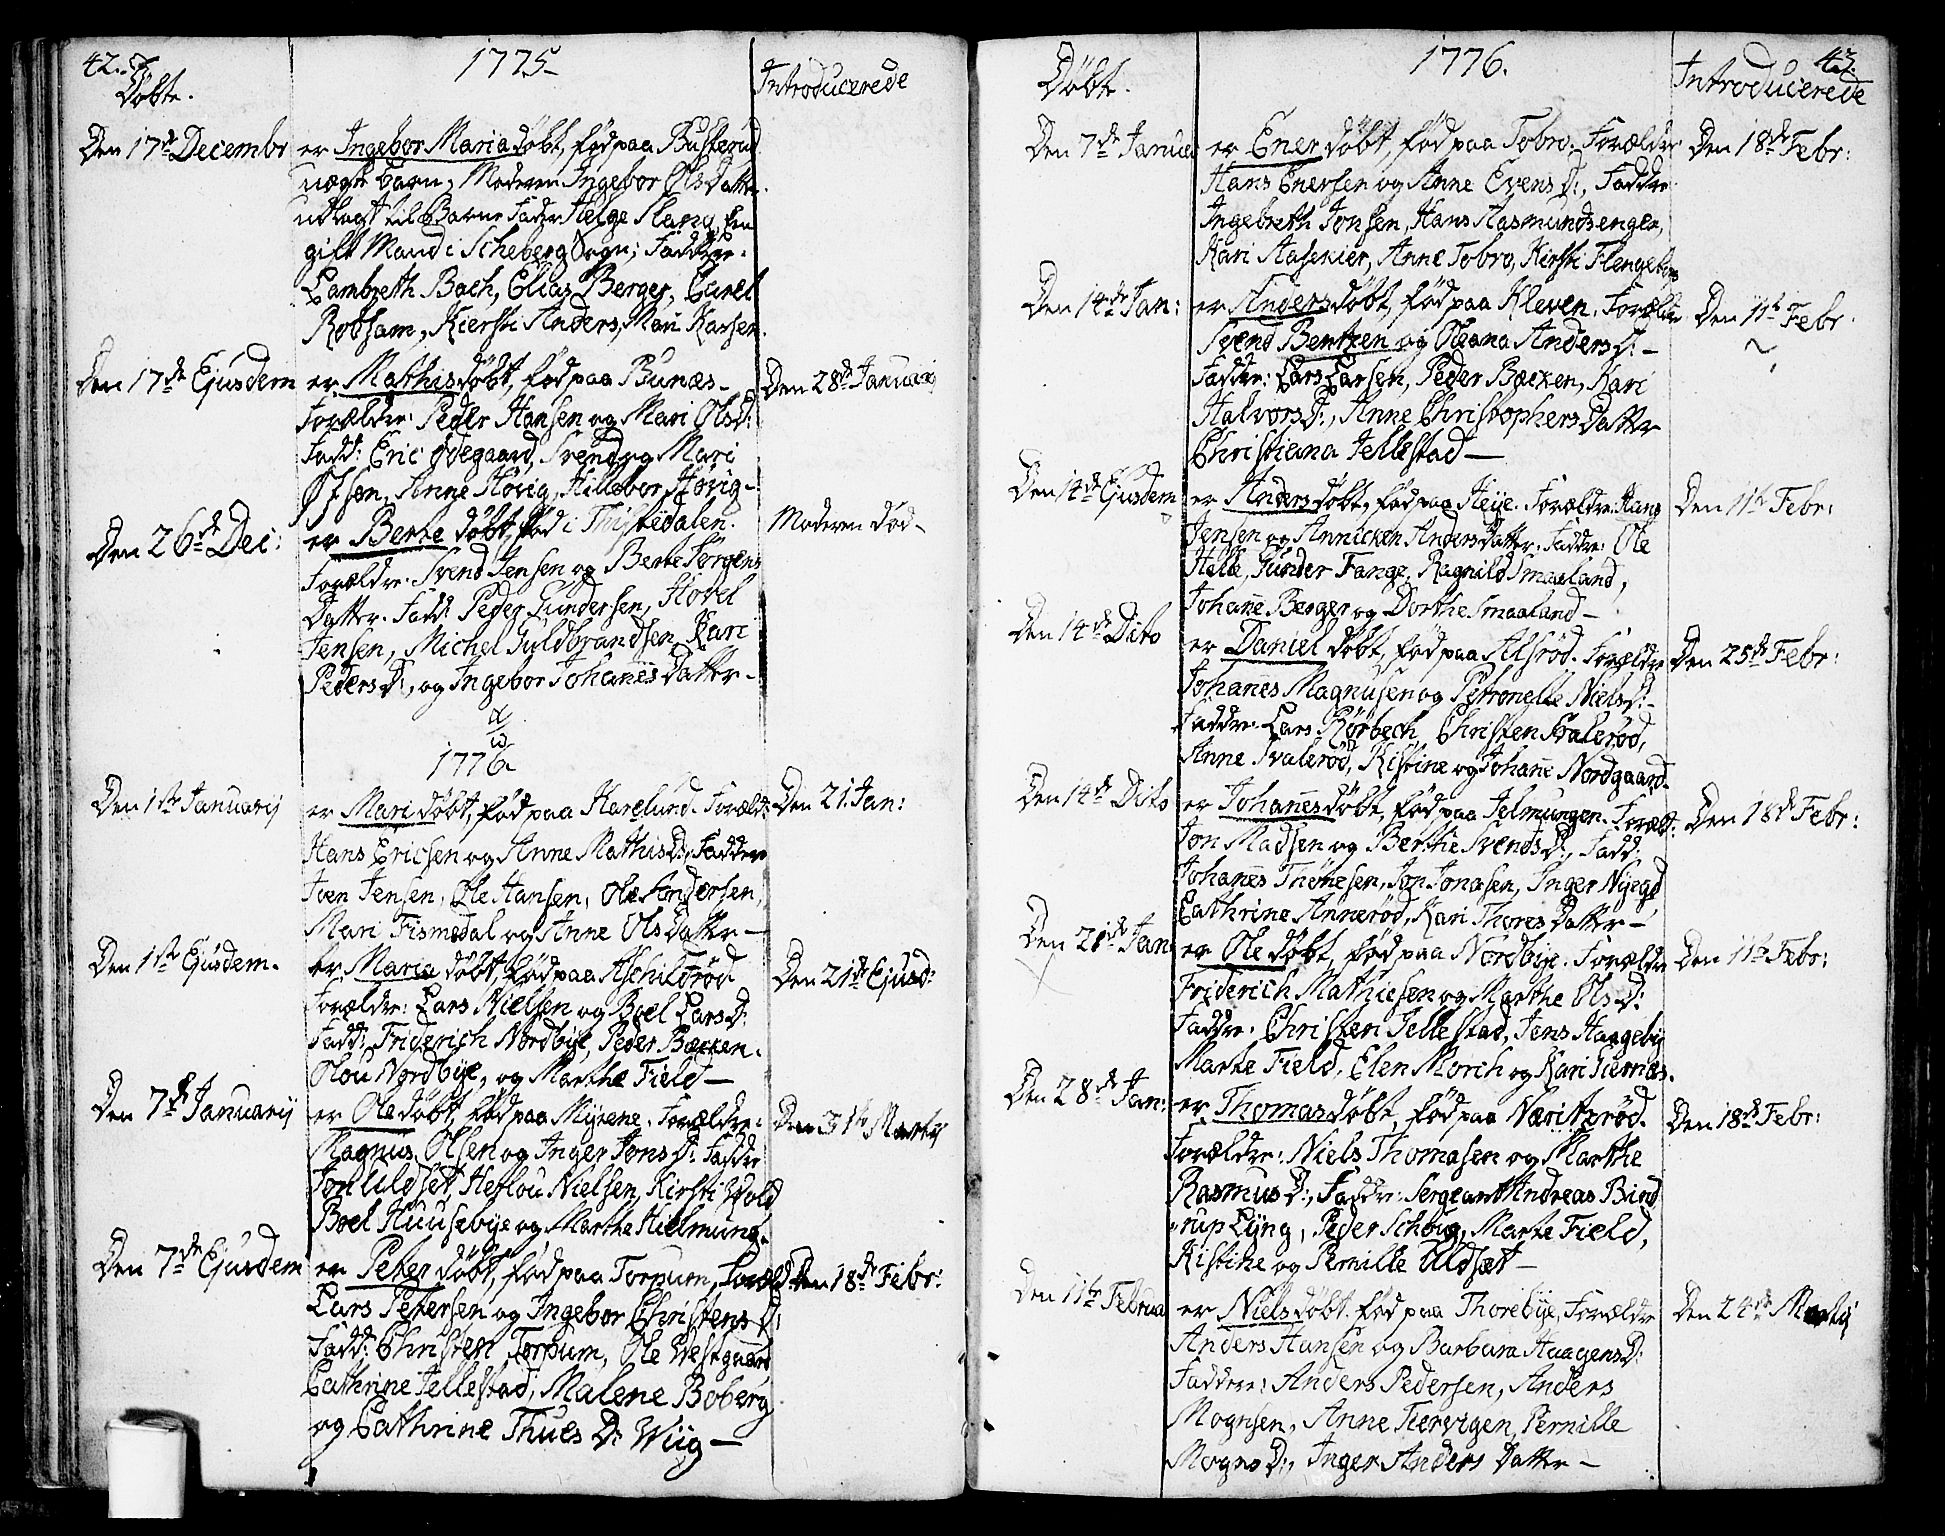 42.
1775
Døbte.
Introducerede
Den 17de Decembr
er Ingebor Maria døbt, fød paa Busterud
uægte barn, Moderen Ingebor Ols Datter
udlagt til Barne Fader Helge Slang, En
gift Mand i Scheberg Sogn; Faddre:
Lambreth Bach, Elias Berger, Carel
Robsam, Kiersti Anders, Mari Karsen.
Den 17de Ejusdem
er Mathis døbt, fød paa Bunæs
Den 28de Januarij
Forældre: Peder Hansen og Mari Ols D:
Fadd: Eric Ødegaard, Svend og Mari
Anne Høvig, Hillebor Høvig
Den 26de Dec:
er Berte døbt, fød i Thistedalen.
Moderen død
Forældre: Svend Jensen og Berte Jørgens
Datter. Fadd: Peder Gundersen, Hovel
Jensen, Michel Guldbrandsen, Kari
Peders D:, og Ingebor Johanes Datter
1776
Den 1ste Januarij
er Mari døbt, fød paa Harelund. Foræld:
Den 21. Jan:
Hans Ericsen og Anne Mathis D:, Faddere
Iven Jensen, Ole Hansen, Ole Andersen,
Mari Fismedal og Anne Ols Datter
Den 1ste Ejusdem.
er Maria døbt, fød paa Aschildrød
Den 21de Ejusd:
Forældre: Lars Nielsen og Boel Lars D:
Fadd: Friderich Nordbye, Peder Bæcken.
Olou Nordbye, og Marthe Field
Den 7de Januarij
er Ole døbt, fød paa Myrene. Forældre:
Den 31te Martij
Magnus Olsen og Inger Jons D: Faddre
Joel Uldset, Heflou Nielsen, Kirsti Wold
Boel Huusebye og Marthe Hielmung.
Den 7de Ejusdem
er Peter døbt, fød paa Torpum, Foræld:
Den 18de Febr:
Lars Petersen og Ingebor Christens D:
Fadd: Christen Torpum, Ole Westgaard
Cathrine Jellestad, Malene Boberg
og Cathrine Thues D: Wiig
43.
1776.
Døbt.
Introducerede
Den 7de Janua
er Ener døbt, fød paa Tobro. Forældre
Den 18de Febr:
Hans Enersen og Anne Evens D:, Faddre
Ingebreth Jonsen, Hans Aasmundsengen,
Kari Aasekier, Anne Tobro, Kirsti Flengeberg
Den 14de Jan:
er Anders døbt, fød paa Kleven, Forældre
Den 11te Febr.
Svend Bentzen og Oleana Anders D:
Faddre: Lars Larsen, Peder Bæcken, Kari
Halvors D:, Anne Christophers Datter
Christiana Jellestad
Den 14de Ejusdem
er Anders døbt, fød paa Heije. Forældre: Hans
Den 11te Febr:
Jensen og Annicken Anders Datter. Faddre: Ole
Helle, Gunder Fange, Ragnild Smaaland,
Johane Berger og Dorthe Smaaland
Den 14de Dito
er Daniel døbt, fød paa Alsrød. Forældre
Den 25de Febr:
Johanes Magnusen og Petronelle Niels D:
Faddre: Lars Kørbech, Christen Svalerød,
Anne Svalerød, Kistine og Johane Nordgaard.
Den 14de Dito
er Johanes døbt, fød paa Jelmungen. Foræld:
Den 18de Febr:
Jon Madsen og Berthe Svends D:, Fadd:
Johanes Thønesen, Jon Jonasen, Inger Nyegd
Cathrine Annerød, Kari Thores Datter
Den 21de Jan:
er Ole døbt, fød paa Nordbye. Forældre
Den 11te Febr:
Friderich Mathiesen og Marthe Ols D:
Faddre: Christen Jellestad, Jens Haagebye
Marte Field, Elen Morch og Kari Tiernæs.
Den 28de Jan:
er Thomas døbt, fød paa Næritzrød.
Den 18de Febr:
Forældre: Niels Thomasen og Marthe
Rasmus D:, Faddre: Sergeant Andreas Bind
rup Lyng, Peder Schøig, Marte Field,
Kistine og Pernille Uldsæt
Den 11te Februa
er Niels døbt, fød paa Thorebye, Forældre
Den 24de Martij
Anders Hansen og Barbara Haagens D:
Faddere: Anders Pedersen, Anders
Mognsen, Anne Tiervigen, Pernille
Mogns D:, Inger Anders Datter